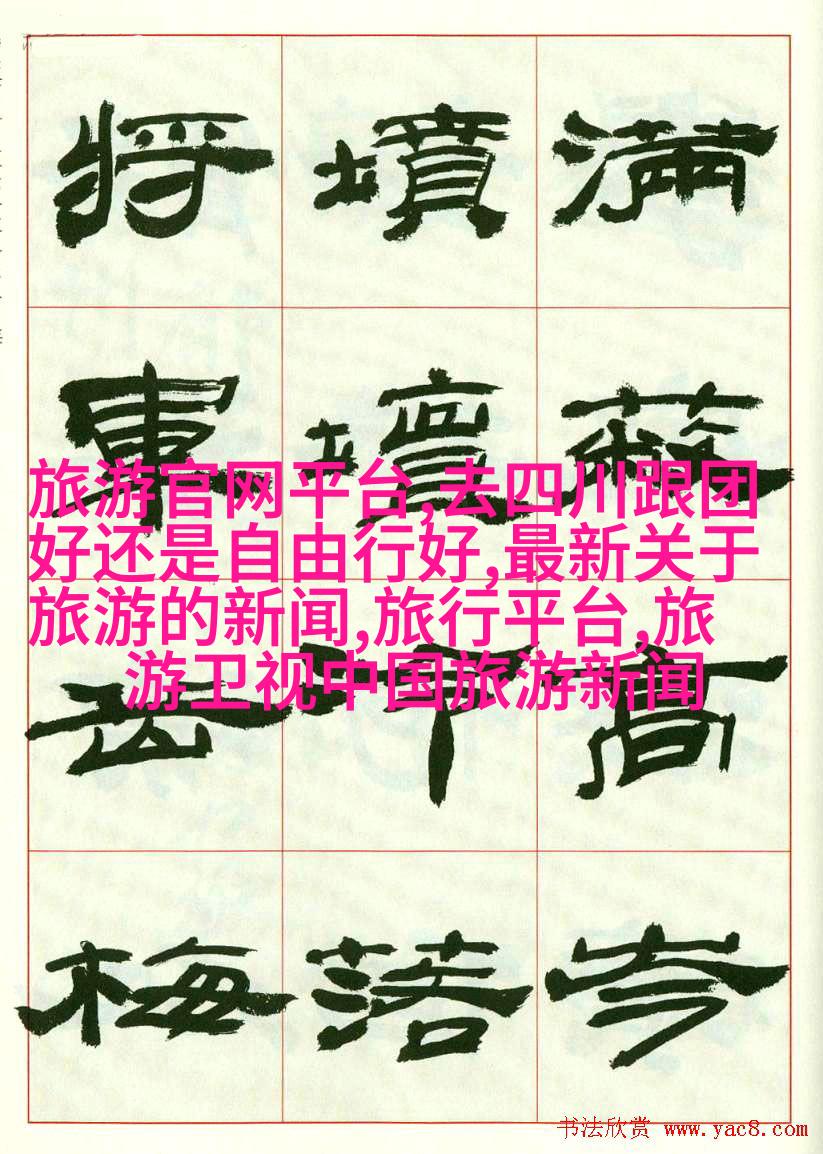 滿蔽高岑
墳壇落
将軍梅
旅游官网平台,去四川跟团
好还是自由行好,最新关于
旅游的新闻,旅行平台,旅
游卫视中国旅游新闻
书法欣赏 www.yac8.com